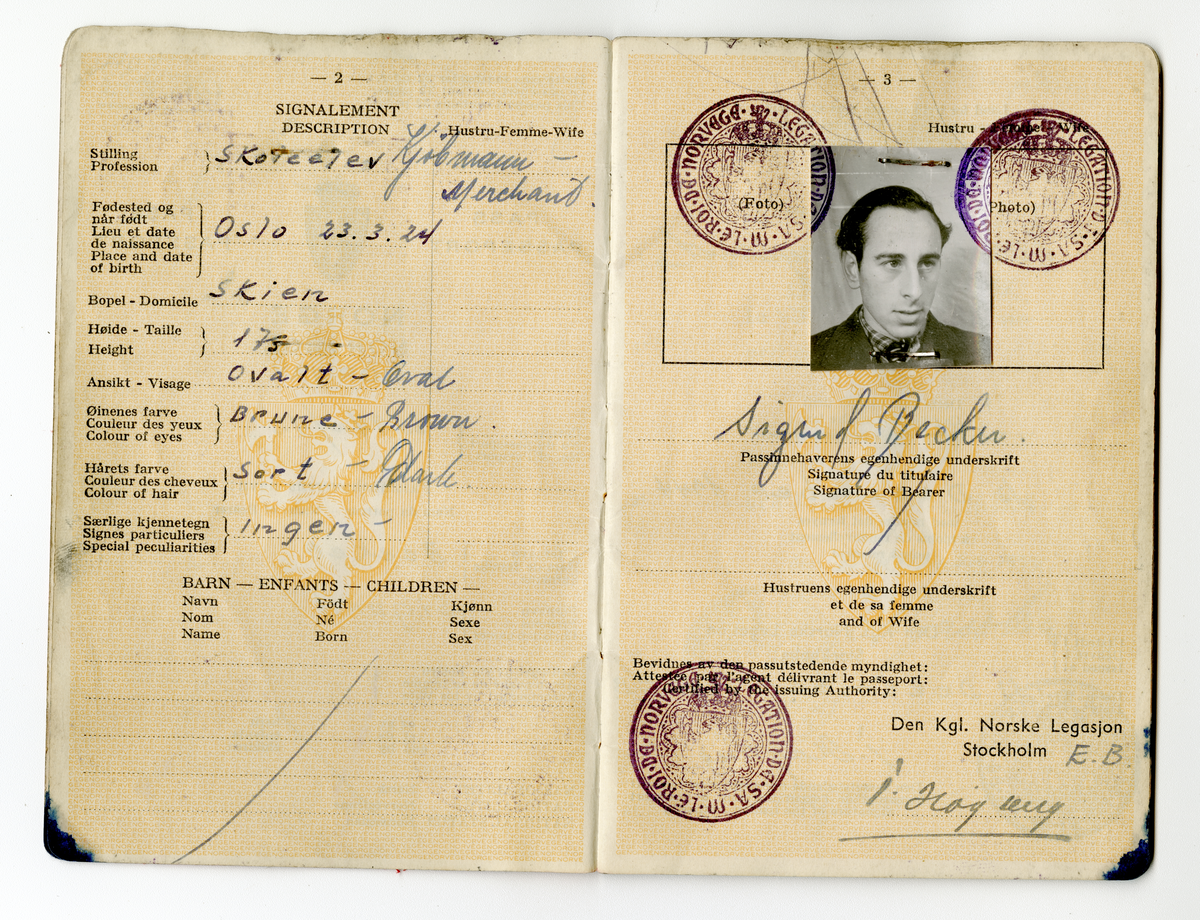 — 2 —
SIGNALEMENT
DESCRIPTION
Hustru-Femme-Wife
Stilling
Profession
Skoleelev Kjöbmann –
Merchant.
Fødested og
når født
Lieu et date
de naissance
Place and date
of birth
Oslo 23.3.24
Bopel - Domicile Skien
Høide - Taille
Height
175
Ansikt - Visage Ovalt – Oval
Øinenes farve
Couleur des yeux
Colour of eyes
Brune – Brown.
Hårets farve
Couleur des cheveux
Colour of hair
Sort – Dark
Særlige kjennetegn
Signes particuliers
Special peculiarities
Ingen –
BARN — ENFANTS — CHILDREN —
Navn Födt Kjønn
Nom Né Sexe
Name Born Sex
— 3 —
Hustru - Femme - Wife
LEGATION·DE·S·A·M·LE·ROI·DE·NORVEGE
LEGATION·DE·S·A·M·LE·ROI·DE·NORVEGE
(Foto)
Photo)
Becker.
Passinnehaverens egenhendige underskrift
Signature du titulaire
Signature of Bearer
Hustruens egenhendige underskrift
et de sa femme
and of Wife
Bevidnes av den passutstedende myndighet:
Attestée par l'agent délivrant le passeport:
Certified by the issuing Authority:
LEGATION·DE·S·A·M·LE·ROI·DE·NORVEGE
Den Kgl. Norske Legasjon
Stockholm E.B.